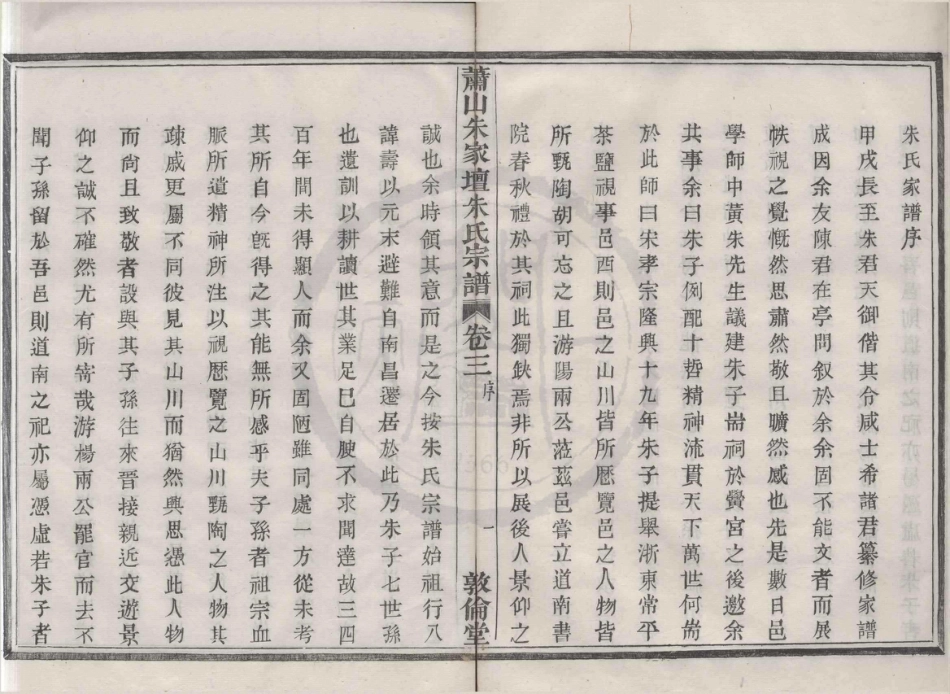 朱氏家譜序
甲戌長至朱君天御偕其兮咸士希諸君纂修家譜
成因余友陳君在亭問叙於余余固不能文者而展
帙視之覺慨然思肅然敬且曠然感也先是數日邑
學師中黃朱先生議建朱子耑祠於黌宮之後邀余
共事余曰朱子例配十哲精神流貫天下萬世何耑
於此師曰宋孝宗隆興十九年朱子提舉浙東常平
茶鹽視事邑酉則邑之山川皆所歷覽邑之人物皆
所甄陶胡可忘之且游陽兩公蒞茲邑嘗立道南書
院春秋禮於其祠此獨鈌焉非所以展後人景仰之
蕭山朱家壇朱氏宗譜 卷三 序 一 敦倫堂
誠也余時領其意而是之今按朱氏宗譜始祖行八
諱壽以元末避難自南昌遷居於此乃朱子七世孫
也遺訓以耕讀世其業足已自腴不求聞達故三四
百年間未得顯人而余又固陋雖同處一方從未考
其所自今旣得之其能無所感乎夫子孫者祖宗血
脈所遺精神所注以視歷覽之山川甄陶之人物其
疎戚更屬不同彼見其山川而猶然興思憑此人物
而尙且致敬者設與其子孫往來晉接親近交遊景
仰之誠不確然尤有所寄哉游楊兩公罷官而去不
聞子孫留於吾邑則道南之祀亦屬憑虛若朱子者